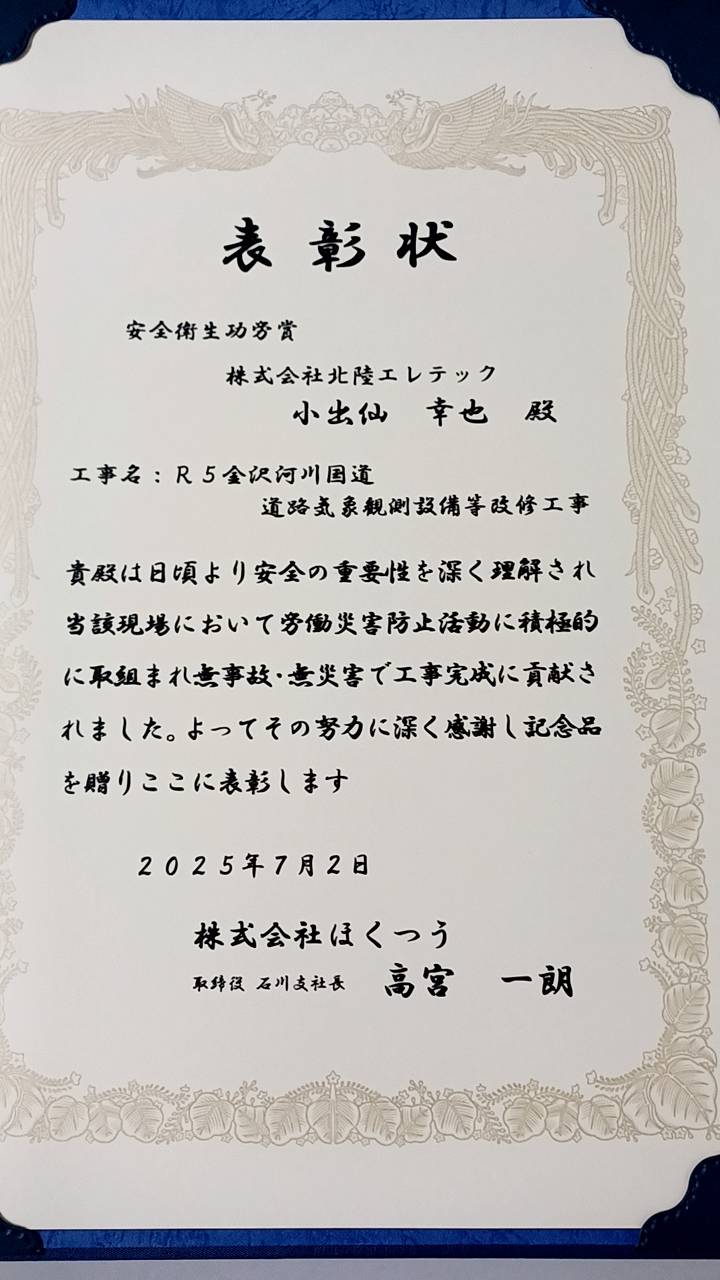 表彰状
安全衛生功労賞
株式会社北陸エレテック
小出仙　幸也　殿
工事名：Ｒ５金沢河川国道
道路気象観測設備等改修工事
貴殿は日頃より安全の重要性を深く理解され
当該現場において労働災害防止活動に積極的
に取組まれ無事故・無災害で工事完成に貢献さ
れました。よってその努力に深く感謝し記念品
を贈りここに表彰します
２０２５年７月２日
株式会社ほくつう
取締役 石川支社長　高宮　一朗